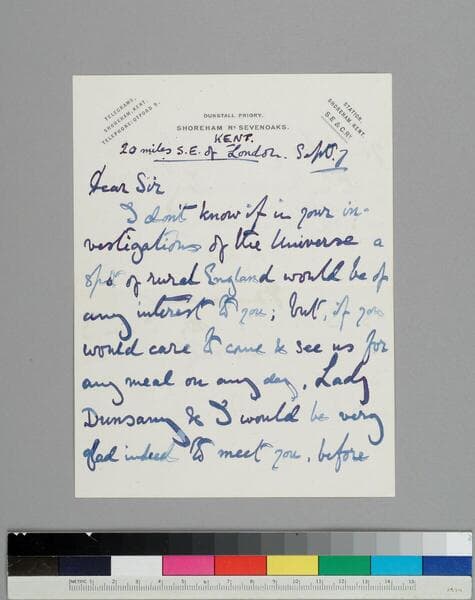 TELEGRAMS,
SHOREHAM, KENT.
TELEPHONE: OTFORD 5.
STATION,
SHOREHAM, KENT.
S.E.& C.RY
DUNSTALL PRIORY,
SHOREHAM NR SEVENOAKS.
KENT.
20 miles S.E. of London. Sept. 7
Dear Sir
I don't know if in your in-
vestigations of the Universe a
spot of rural England would be of
any interest to you; but, if you
would care to come & see us for
any meal on any day, Lady
Dunsany & I would be very
glad indeed to meet you, before
METRIC 1 2 3 4 5 6 7 8 9 10 11 12 13 14 15